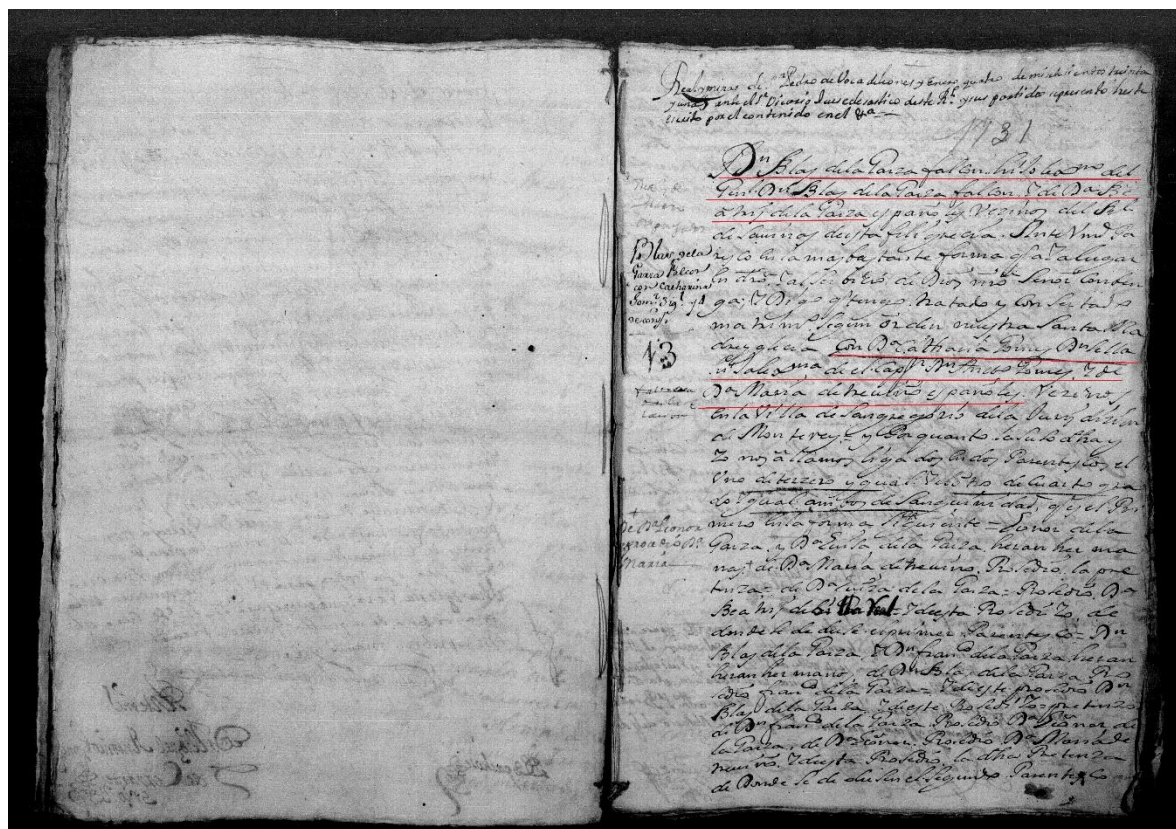 Real y minas de Sn Pedro de Voca de leones y Enero quatro de mil setesientos treinta
y uno ante el Sr Vicario Jues eclesiastico deste Rl y sus partidos se presento este
escrito por el contenido en el
1731
Dn Blas de la Garza falcon hijo legmo del
Genl Dn Blas de la Garza falcon, y de Da Be
atris de la Garza españoles Vezinos del Rl
de Savinas de esta feligrecia. Ante Vmd Pa
resco en la mas bastante forma q aia lugar
en dro y al servicio de Dios nro Señor conven
ga; Y Digo q tengo tratado y consertado
matrimo segun orden nuestra Santa Ma
dre yglecia con Da Catharina Gomes Donsella
hija legma de el Capn Dn Gomes, y de
Da Maria de treviño españoles Vezinos
en la Villa de San gregorio de la Jurisdision
de Monterey y Por quanto la suso dha y
Yo nos allamos ligados en dos Parentescos, el
Uno de terzero ygual y el otro de cuarto gra
do ygual ambos de Sanguinidad, q es el Pri
mero en la forma siguiente Leonor de la
Garza, y Da de la Garza heran herma
nas, de Da Maria de treviño, Prosedio la pre
tenza de Da de la Garza Prosedio, Da
Beatris de Villa Real Y de esta Prosedi Yo, de
donde se deduse el primer Parentesco Dn
Blas de la Garza, y Dn franco de la Garza heran
heran hermanos, de Dn Blas de la Garza, Pro
sedio franco de la Garza Y de este prosedio Dn
Blas de la Garza, Y de este Prosedi Yo pretenzo
de Dn franco de la Garza Prosedio Da Leonor de
la Garza, de Da Leonor, Prosedio Da Maria de
treviño, Y de esta Prosedio la dha Pretenza
de Donde se deduse el segundo Parentesco
Blas de la
Garza Falcon
con Catharina
Gomes
13
De Da Leonor
prosedió Da
Maria